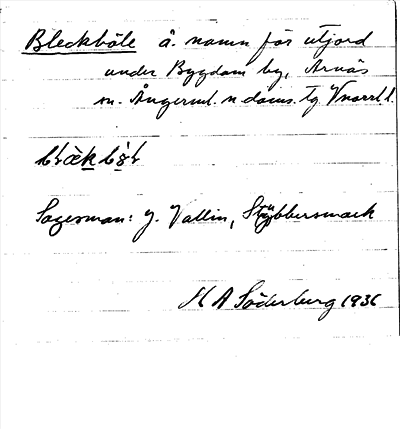 Bleckböle å. namn för utjord
under Bygdom by, Arnäs
sn. Ångerml. n. doms. tg. Vnorrl. l.
Sagesman: J. Vallin, Stybbersmark
M A Söderberg 1936